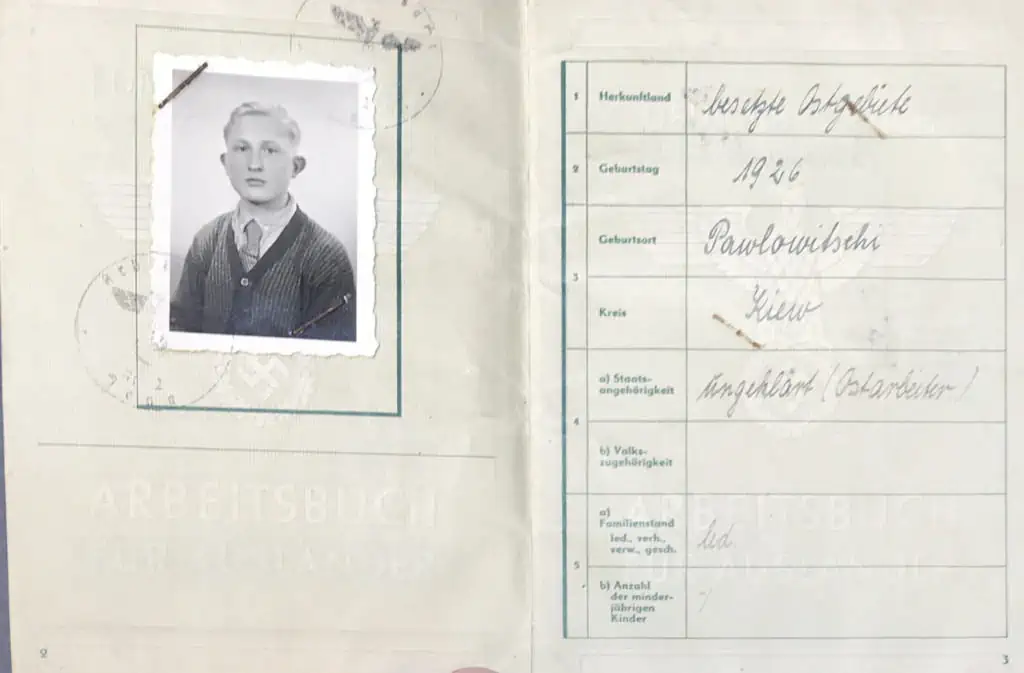 ARBEITSBUCH
2
1 Herkunftland besetzte Ostgebiete
2 Geburtstag 1926
Geburtsort Pawlowitschi
3
Kreis Kiew
a) Staats-
angehörigkeit ungeklärt (Ostarbeiter)
4
b) Volks-
zugehörigkeit
a)
Familienstand
led., verh.,
verw., gesch. led.
ARBEITSBUCH
5
b) Anzahl
der minder-
jährigen
Kinder
3